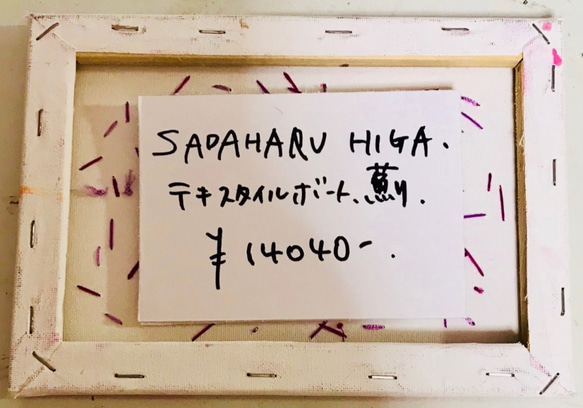 SADAHARU HIGA.
テキスタイルボード、薊り.
¥14040-.